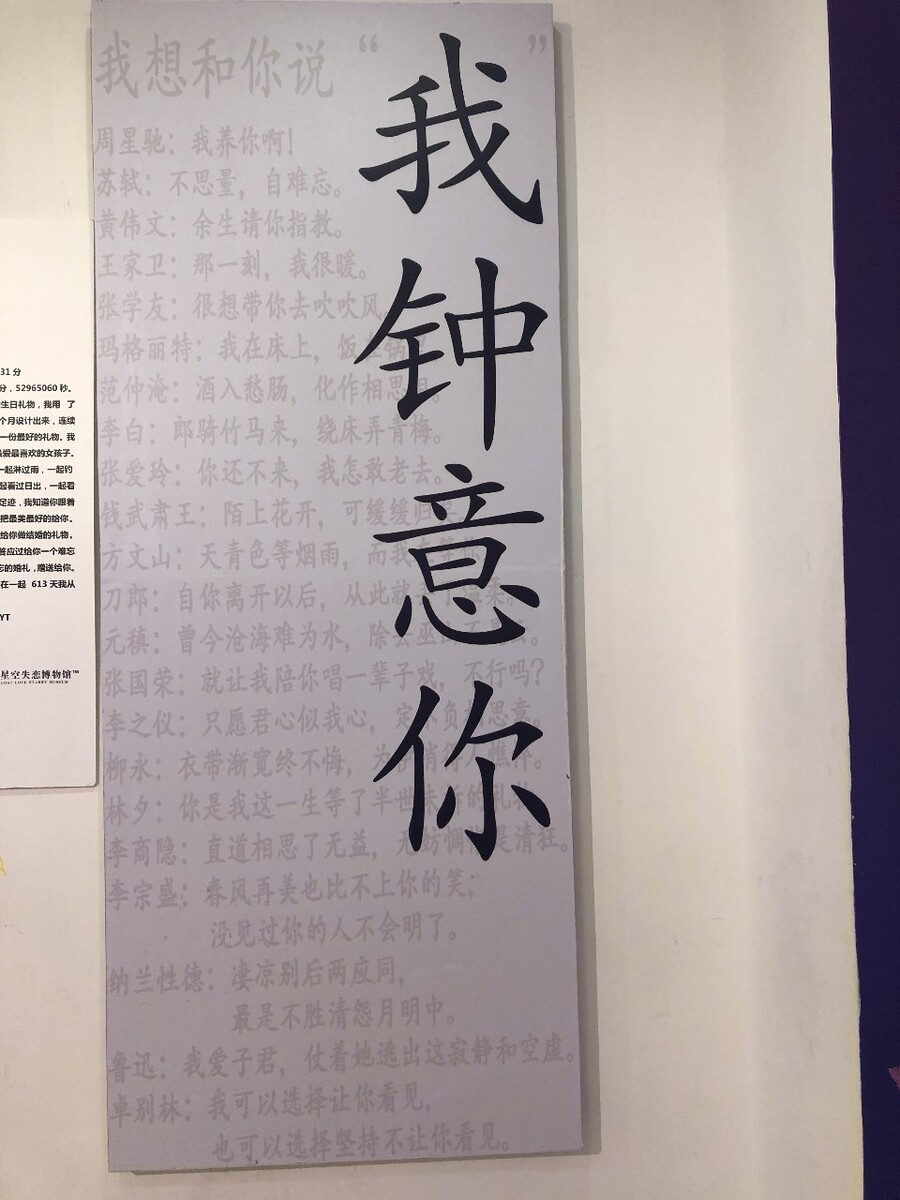 我想和你说“ ”
我钟意你
周星驰：我养你啊！
苏轼：不思量，自难忘。
黄伟文：余生请你指教。
王家卫：那一刻，我很暖。
张学友：很想带你去吹吹风。
玛格丽特：我在床上，饭在锅里。
范仲淹：酒入愁肠，化作相思泪。
李白：郎骑竹马来，绕床弄青梅。
张爱玲：你还不来，我怎敢老去。
钱武肃王：陌上花开，可缓缓归
方文山：天青色等烟雨，而我在等你
刀郎：自你离开以后，从此就 温柔。
元稹：曾今沧海难为水，除去巫山不是云。
张国荣：就让我陪你唱一辈子戏，不行吗？
李之仪：只愿君心似我心，定不负相思意。
柳永：衣带渐宽终不悔，为 消得人憔悴。
林夕：你是我这一生等了半世未 的礼物
李商隐：直道相思了无益，无妨惆怅是清狂。
李宗盛：春风再美也比不上你的笑；
没见过你的人不会明了。
纳兰性德：凄凉别后两应同，
最是不胜清怨月明中。
鲁迅：我爱子君，仗着她逃出这寂静和空虚。
卓别林：我可以选择让你看见，
也可以选择坚持不让你看见。
31 分
分，52965060 秒。
生日礼物，我用 了
个月设计出来，连续
一份最好的礼物。我
最爱最喜欢的女孩子。
一起淋过雨，一起钓
起看过日出，一起看
足迹，我知道你跟着
把最美最好的给你。
给你做结婚的礼物。
答应过给你一个难忘
忘的婚礼，赠送给你。
在一起 613 天我从
YT
星空失恋博物馆™
LOST LOVE STARRY MUSEUM